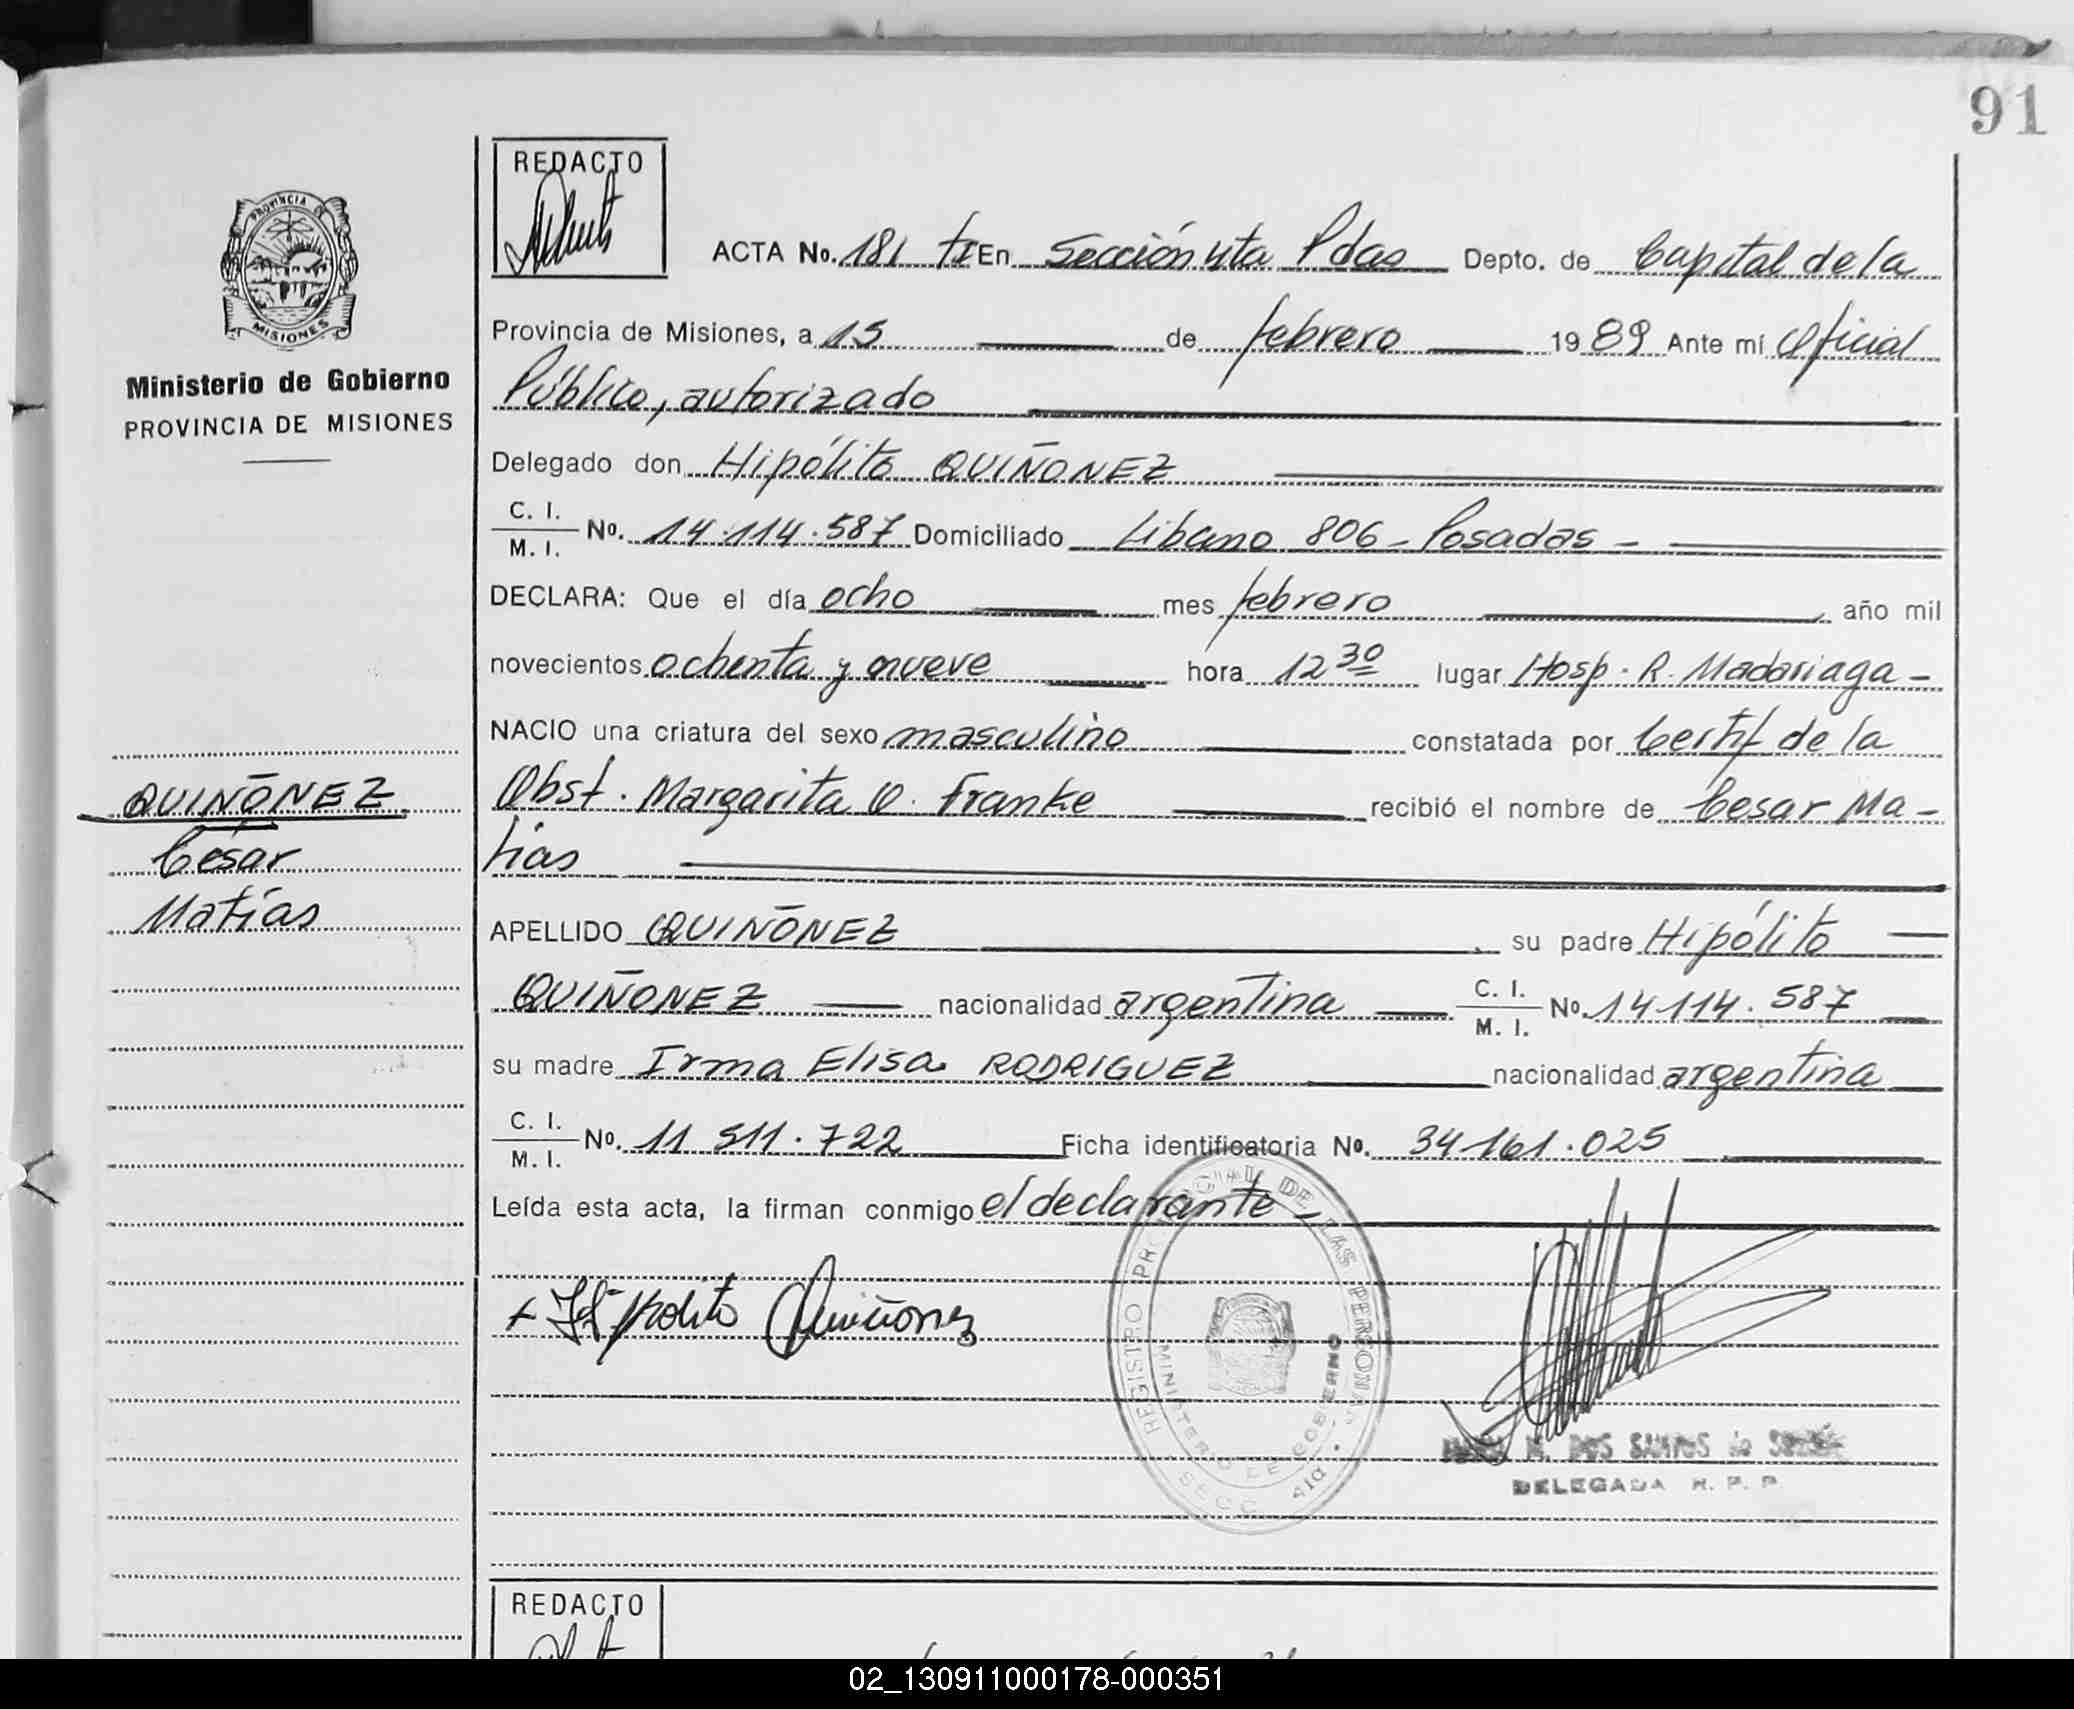 91
REDACTO
PROVINCIA DE
MISIONES
Ministerio de Gobierno
PROVINCIA DE MISIONES
ACTA No. 181 tI En Sección 4ta Pdas Depto. de Capital de la
Provincia de Misiones, a 15 de febrero 1989 Ante mí Oficial
Público, autorizado
Delegado don Hipólito QUIÑONEZ
C. I.
M. I. No. 14.114.587 Domiciliado Libano 806 - Posadas -
DECLARA: Que el día ocho mes febrero, año mil
novecientos ochenta y nueve hora 12 30 lugar Hosp. R. Madariaga -
NACIO una criatura del sexo masculino constatada por Certif de la
Obst. Margarita O. Franke recibió el nombre de Cesar Ma-
tias
QUIÑONEZ
César
Matías
APELLIDO QUIÑONEZ, su padre Hipólito
QUIÑONEZ nacionalidad argentina C. I.
M. I. No. 14.114.587
su madre Irma Elisa RODRIGUEZ nacionalidad argentina
C. I.
M. I. No. 11.511.722 Ficha identificatoria No. 34.161.025
Leída esta acta, la firman conmigo el declarante -
+ Hipolito Quiñonez
REGISTRO PROVINCIAL DE LAS PERSONAS
MINISTERIO DE GOBIERNO
SECC. 4ta.
M. DOS SANTOS de
DELEGADA R. P. P.
REDACTO
02_130911000178-000351